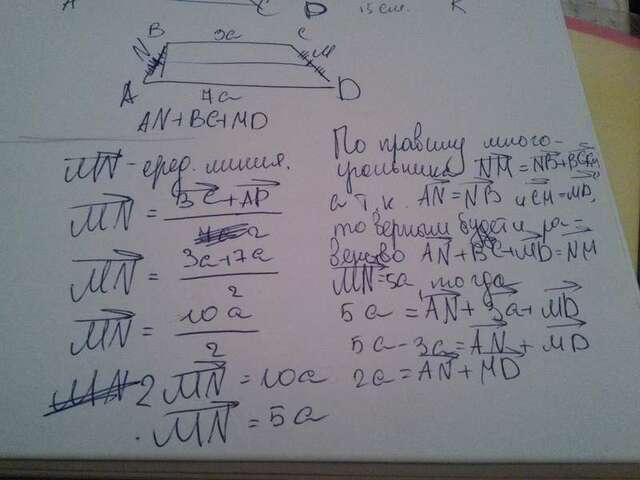 A C D 15 см. K
B 3a C
N M
A 7a D
AN+BC+MD
MN - сред. линия.
MN = BC + AD / 2
MN = 3a+7a / 2
MN = 10a / 2
2 MN = 10a
MN = 5a
По правилу много-
угольника NM = NB+BC+CM
а т.к. AN = NB и CM = MD,
то верным будет и ра-
венство AN + BC + MD = NM
MN = 5a, тогда
5a = AN + 3a + MD
5a - 3a = AN + MD
2a = AN + MD